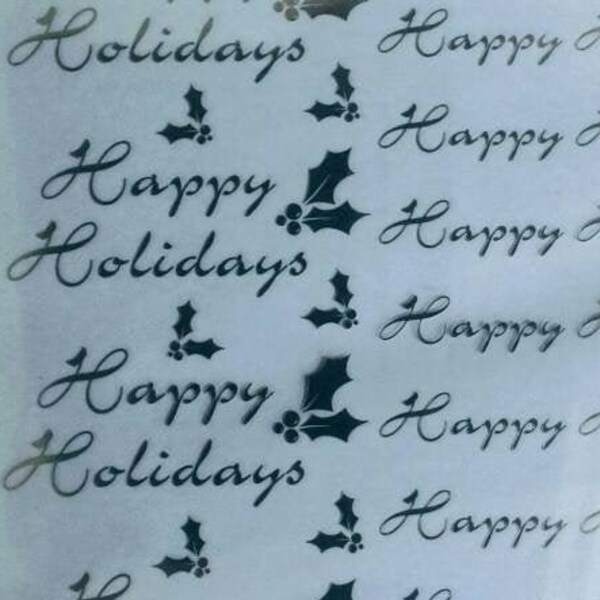 Holidays
Happy
Holidays
Happy
Holidays
Happy
Happy
Happy
Happy
Happy
Happy